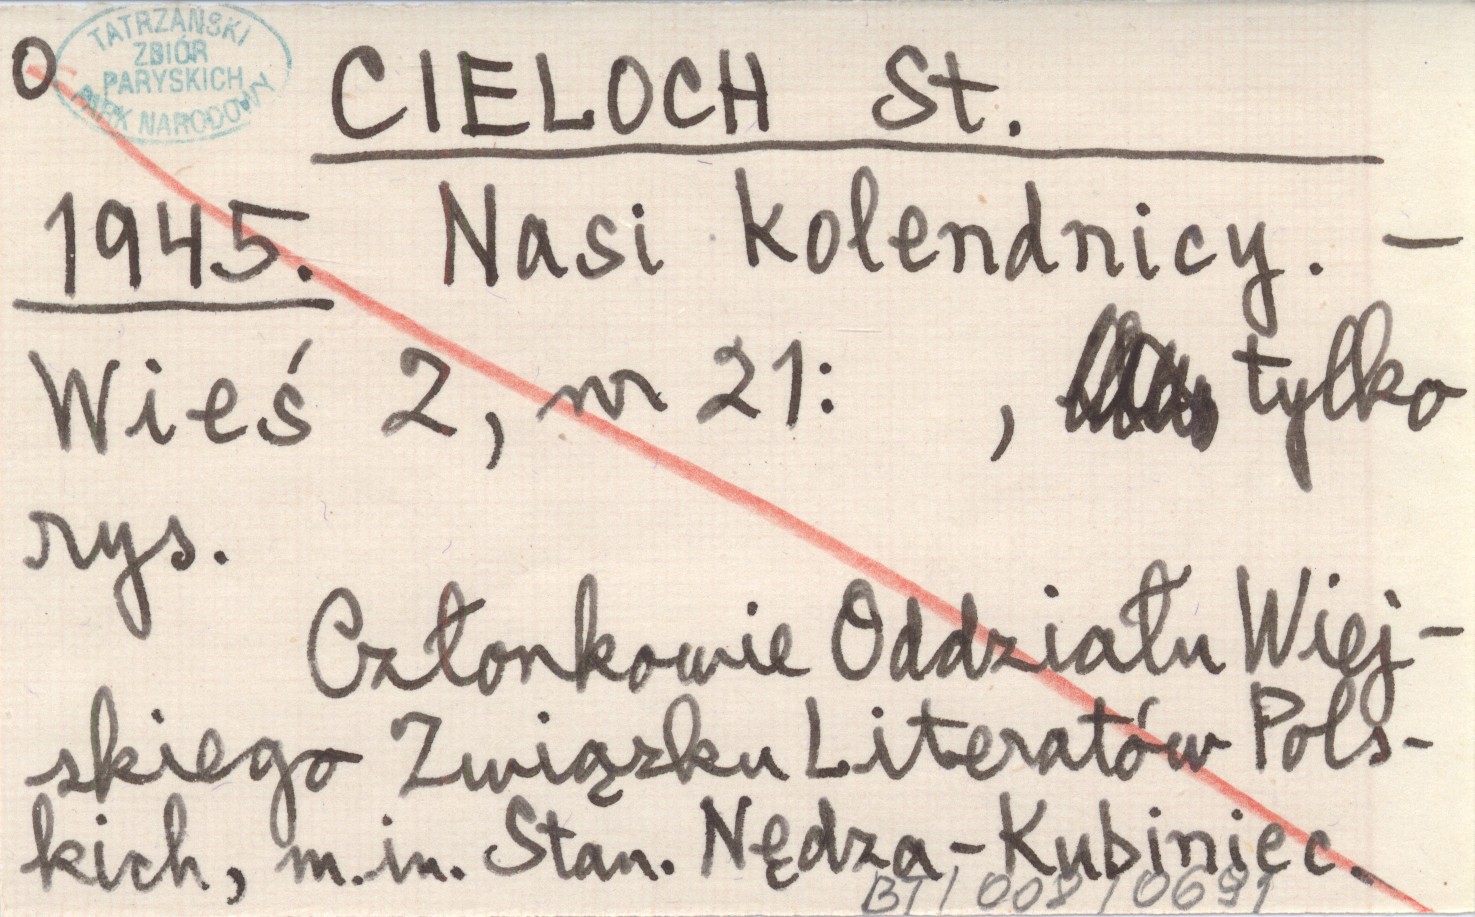 O
TATRZAŃSKI
ZBIÓR
PARYSKICH
PARK NARODOWY
CIELOCH St.
1945. Nasi kolendnicy. –
Wieś 2, nr 21: , tylko
rys.
Członkowie Oddziału Wiej-
skiego Związku Literatów Pols-
kich, m.in. Stan. Nędza-Kubiniec.
BT/008/0691